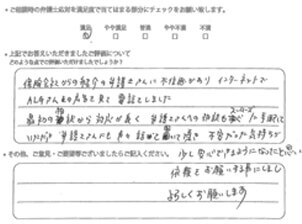 ・ご相談時の弁護士応対を満足度で当てはまる部分にチェックをお願い致します。
満足 やや満足 普通 やや不満 不満
・上記でお答えいただきましたご評価について
どのような点でご評価いただけましたでしょうか？
保険会社からの紹介の弁護士さんに不信感があり インターネットで
ALGさんの名前を見て電話をしました
最初の電話から対応が良く 弁護士さんへの相談も スムーズ
いただき 弁護士さんにも 話を聞いて頂き 不安だった気持ちが
少し安心できるようになったと思い
・その他、ご意見・ご要望等ございましたらご記入ください。
依頼をお願いする事にしました
よろしくお願いします